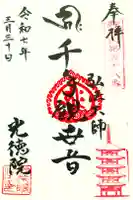 奉拝
弘法大師
千手観世音
令和七年
三月三十日
光徳院